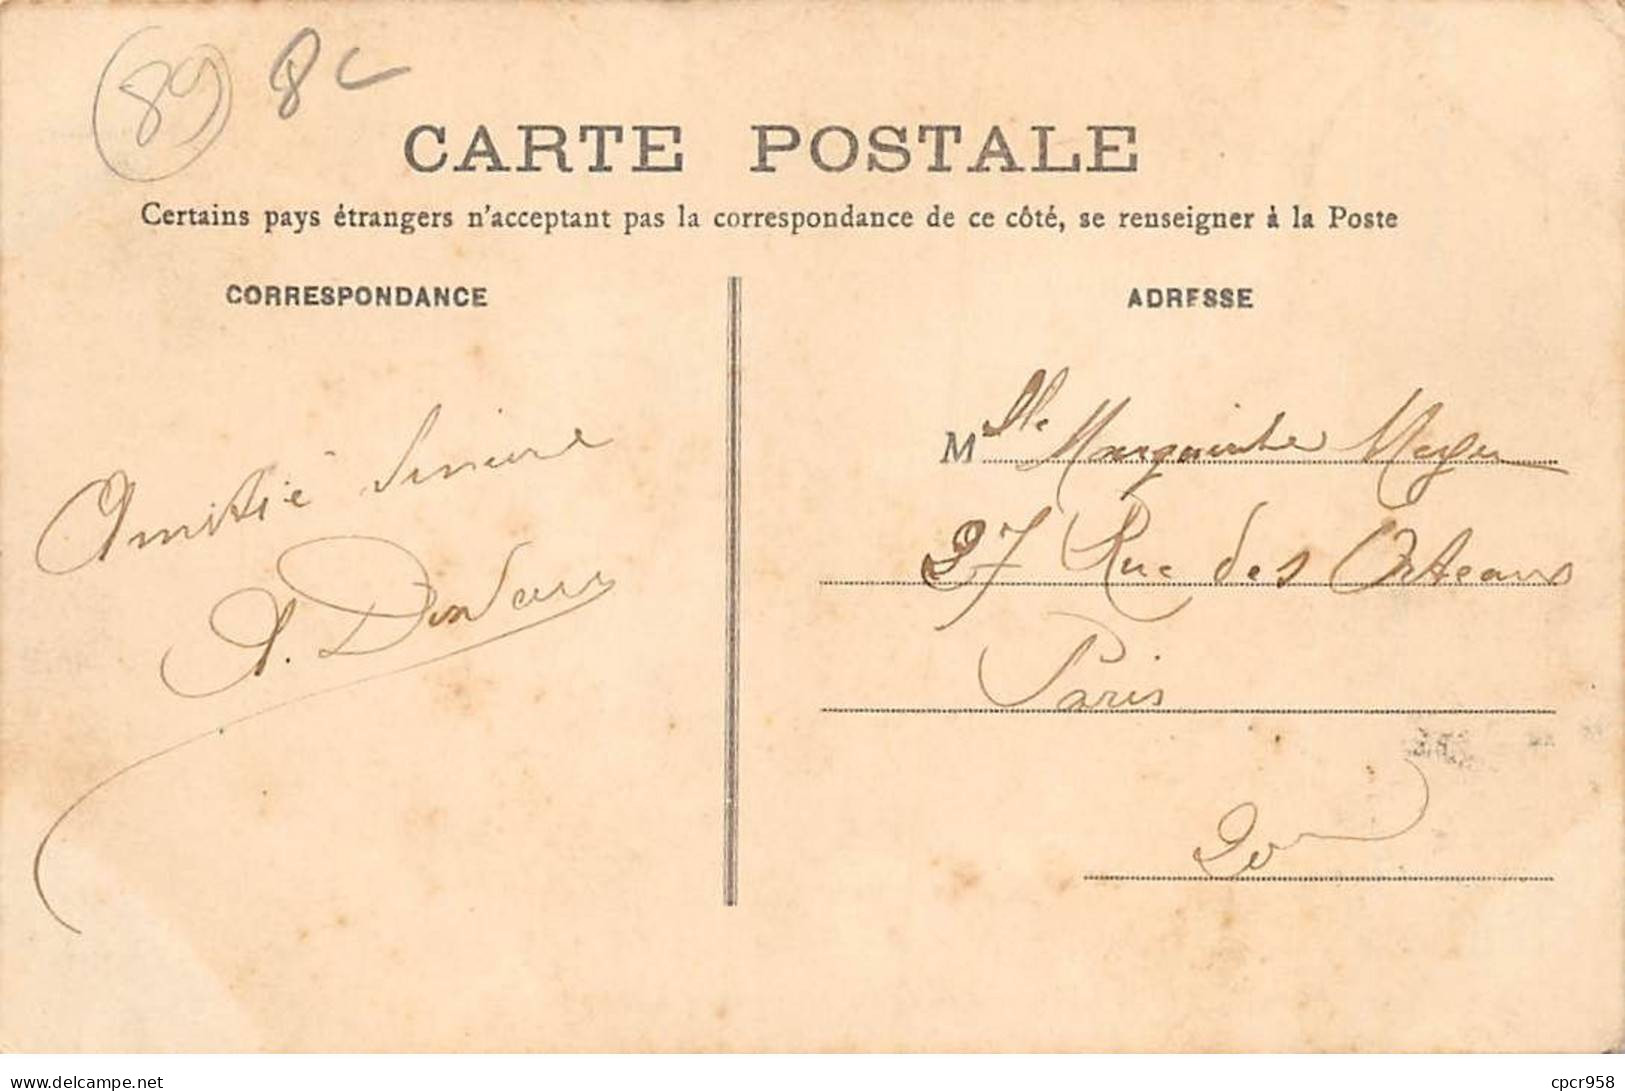 89 8c
CARTE POSTALE
Certains pays étrangers n'acceptant pas la correspondance de ce côté, se renseigner à la Poste
CORRESPONDANCE
ADRESSE
Amitié sincère
A.
Mlle Marguerite Meyer
27 Rue des Orteaux
Paris
20e
www.delcampe.net
cpcr958